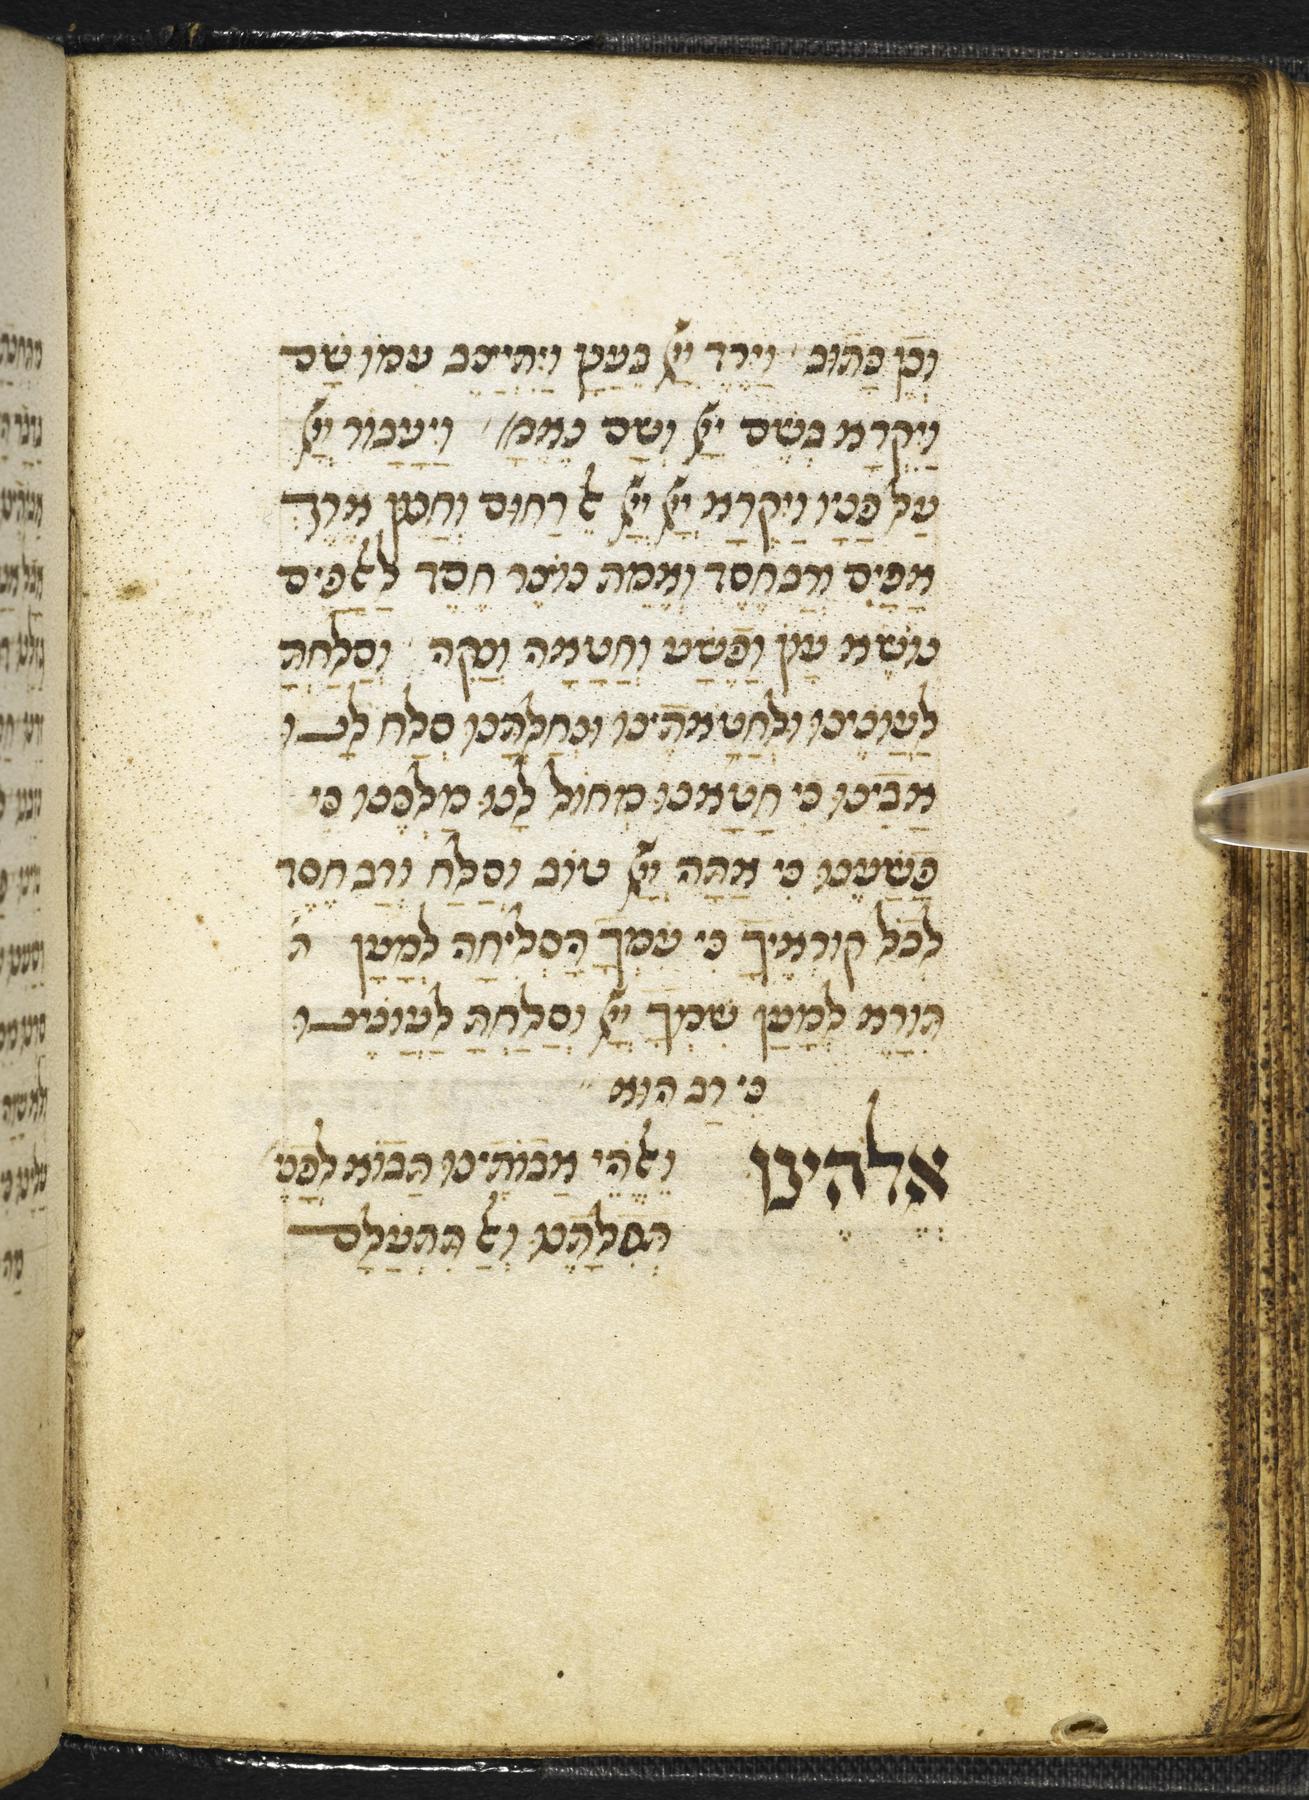 וכן כתוב וירד ייי בענן ויתייצב עמו שם
ויקרא בשם ייי ושם נאמ' ויעבור ייי
על פניו ויקרא ייי ייי אל רחום וחנון ארך
אפים ורב חסד ואמת נוצר חסד לאלפים
נושא עון ופשע וחטאה ונקה וסלחת
לעונינו ולחטאתינו ונחלתנו סלח לנו
אבינו כי חטאנו מחול לנו מלכנו כי
פשענו כי אתה ייי טוב וסלח ורב חסד
לכל קוראיך כי עמך הסליחה למען ת
תורא למען שמך ייי וסלחת לעונינו
כי רב הוא
אלהינו ואלהי אבותינו תבוא לפני
תפלתנו ואל תתעלם